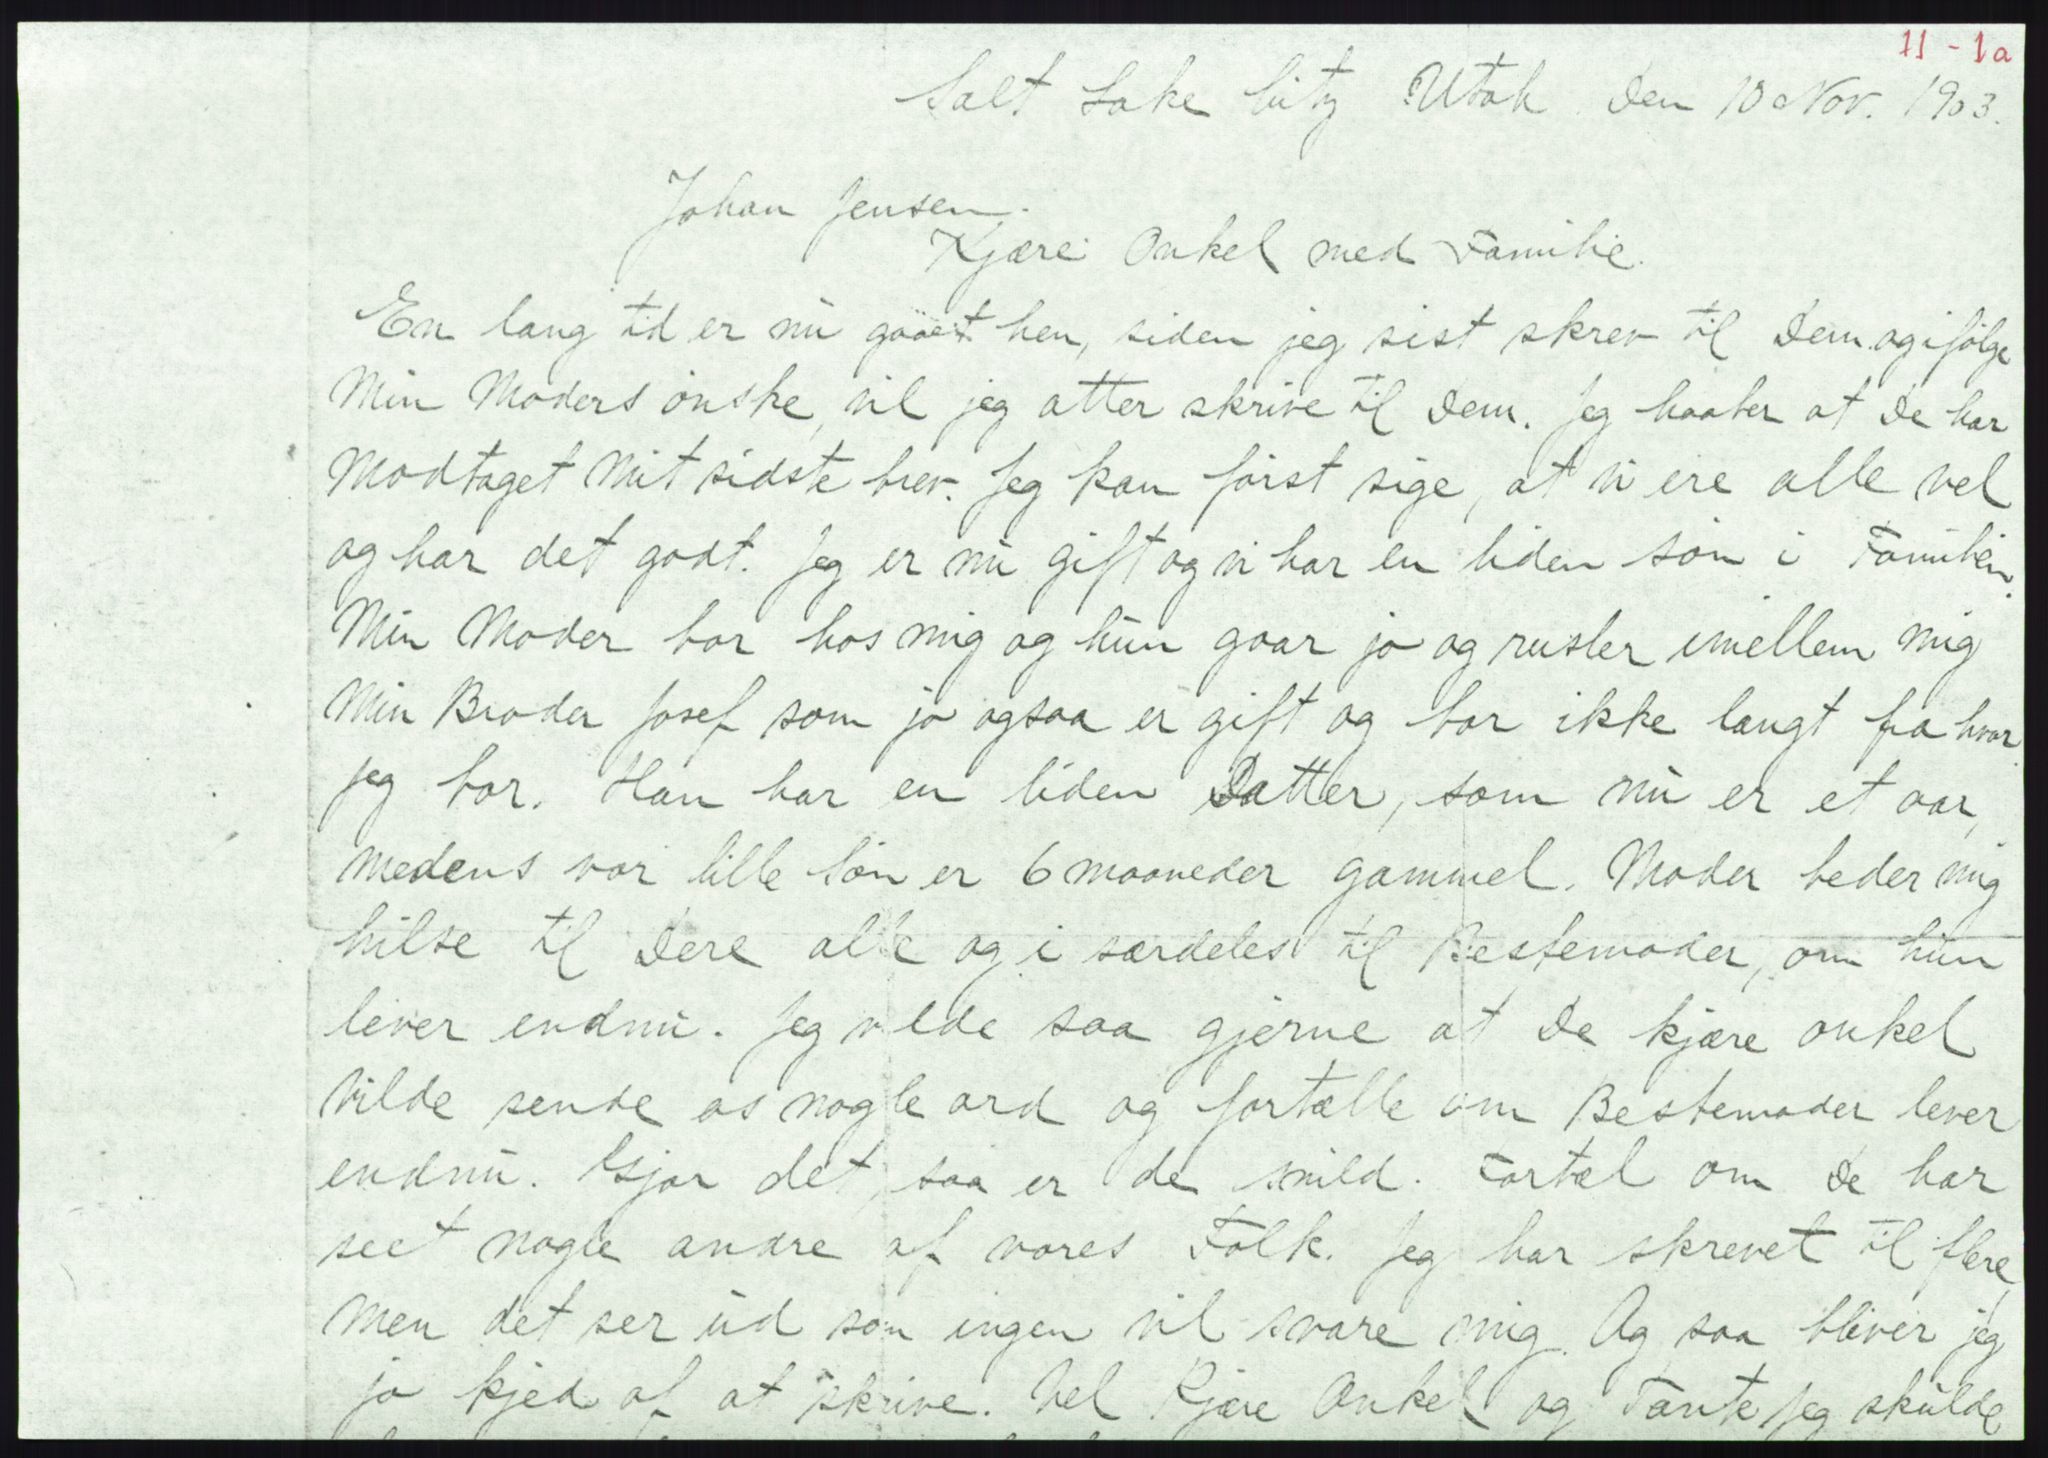 11 - 1a
Salt Lake City Utah Den 10 Nov. 1903.
Johan Jensen.
Kjære Onkel med Familie.
En lang tid er nu gaaet hen, siden jeg sist skrev til Dem og ifølge
Min Moders ønske, vil jeg atter skrive til Dem. Jeg haaber at De har
Modtaget Mit sidste brev. Jeg kan først sige, at vi ere alle vel
og har det godt. Jeg er nu gift og vi har en liden søn i Familien.
Min Moder bor hos mig og hun gaar jo og rusler imellem mig
Min Broder Josef som jo ogsaa er gift og bor ikke langt fra hvor
jeg bor. Han har en liden Datter, som nu er et aar,
medens vor lille Søn er 6 maaneder gammel. Moder beder mig
hilse til Dere alle og i særdeles til Bestemoder, om hun
lever endnu. Jeg vilde saa gjerne at De kjære onkel
Vilde sende os nogle ord og fortælle om Bestemoder lever
endnu. Gjør det, saa er de snild. Fortæl om De har
seet nogle andre af vores Folk. Jeg har skrevet til flere,
Men det ser ud som ingen vil svare mig. Og saa bliver jeg
jo kjed af at skrive. Vel Kjære Onkel og Tante Jeg skulde